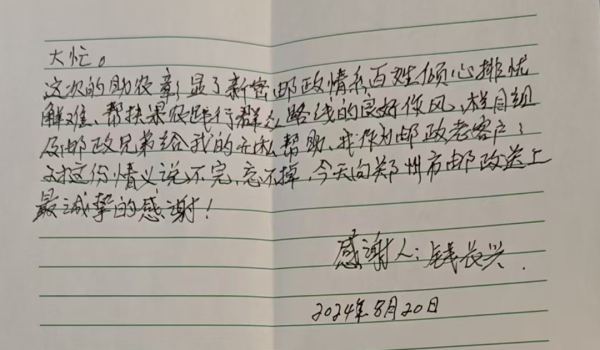 大忙。
这次的助农彰显了新密邮政情系百姓倾心排忧
解难、帮扶果农践行群众路线的良好作风、栏目组
及邮政兄弟给我的无私帮助、我作为邮政老客户;
对这份情义说不完,忘不掉,今天向郑州市邮政送上
最诚挚的感谢!
感谢人:钱长兴.
2024年8月20日